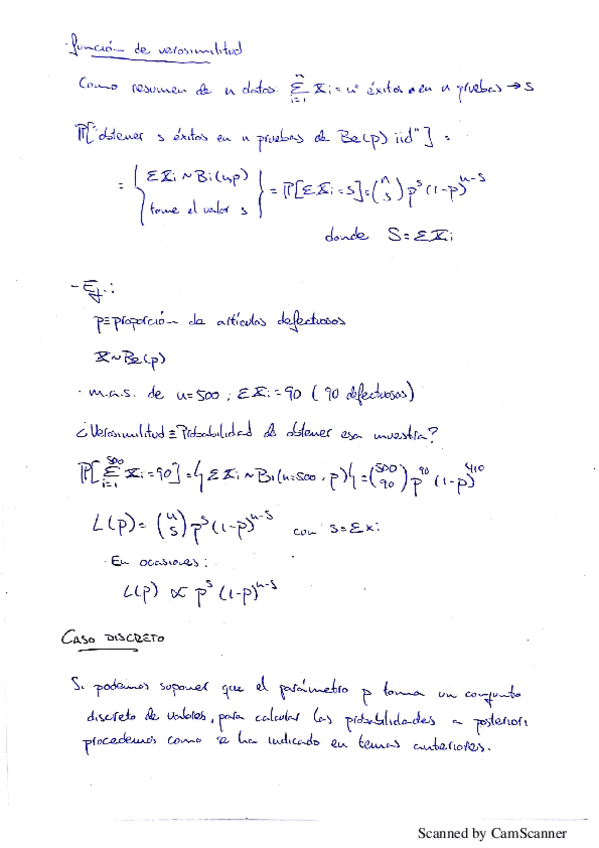 · función de verosimilitud
Como resumen de n datos. n Σ i=1 Xi = nº éxitos en n pruebas → s
P["obtener s éxitos en n pruebas de Be(p) iid"] =
= { ΣXi ~ Bi(n,p) tome el valor s } = P[ΣXi = s] = (n s) p^s (1-p)^{n-s}
donde S = ΣXi
- Ej.:
p≡proporción de artículos defectuosos
X~Be(p)
· m.a.s. de n=500 ; ΣXi=90 ( 90 defectuosos)
¿Verosimilitud ≡ Probabilidad de obtener esa muestra?
P[ 500 Σ i=1 Xi = 90] = { ΣXi ~ Bi(n=500, p) } = (500 90) p^90 (1-p)^410
L(p) = (n s) p^s (1-p)^{n-s} con s = Σxi
· En ocasiones:
L(p) ∝ p^s (1-p)^{n-s}
CASO DISCRETO
Si podemos suponer que el parámetro p toma un conjunto
discreto de valores, para calcular las probabilidades a posteriori
procedemos como se ha indicado en temas anteriores.
Scanned by CamScanner